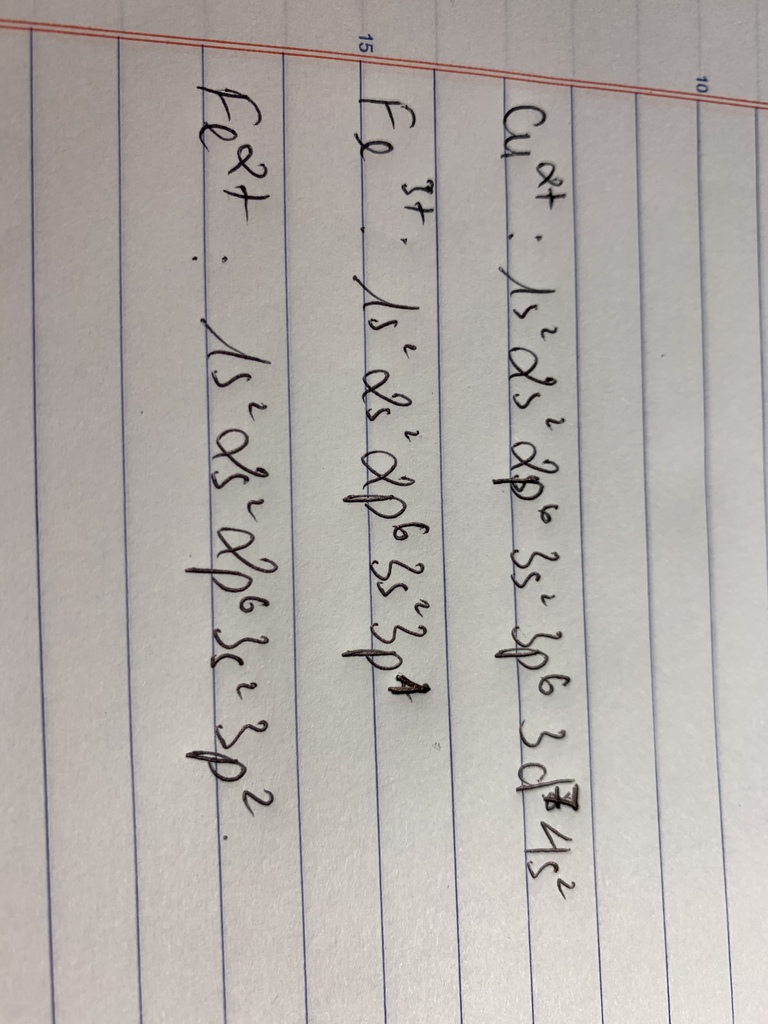 10
Cu²⁺ : 1s² 2s² 2p⁶ 3s² 3p⁶ 3d⁷ 4s²
15
Fe³⁺ : 1s² 2s² 2p⁶ 3s² 3p¹
Fe²⁺ : 1s² 2s² 2p⁶ 3s² 3p².